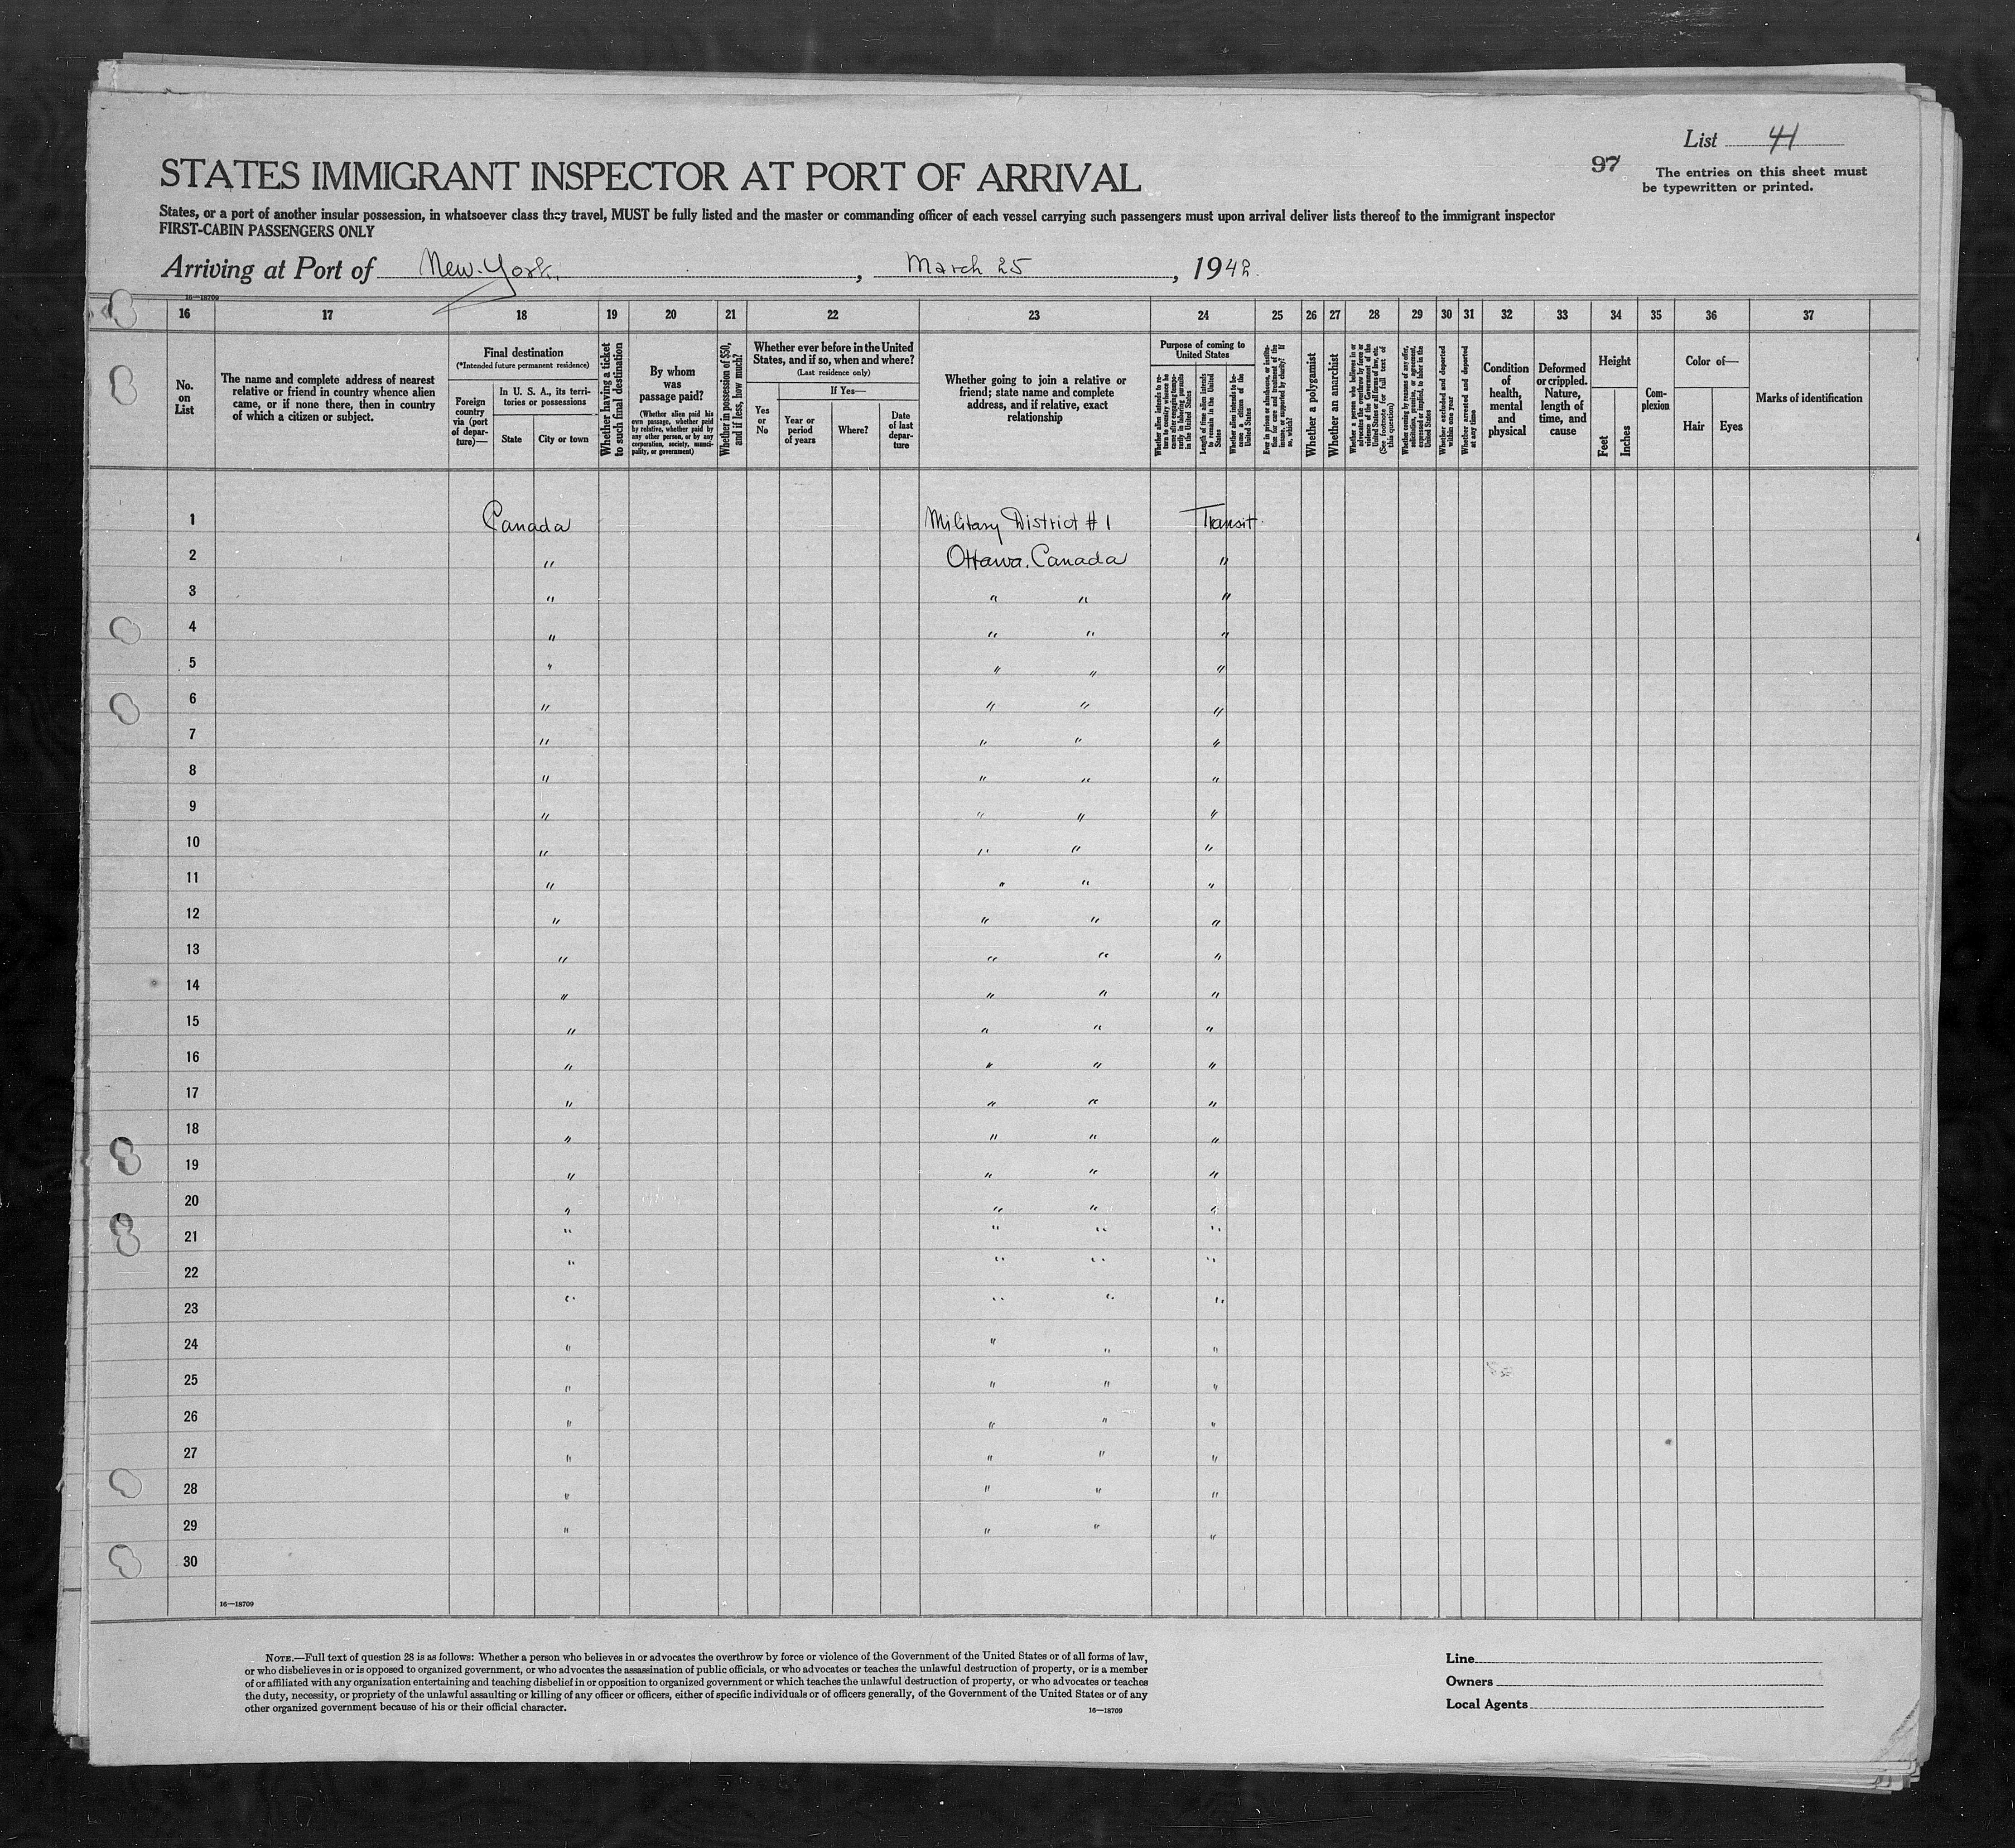 List 41
97
The entries on this sheet must
be typewritten or printed.
STATES IMMIGRANT INSPECTOR AT PORT OF ARRIVAL
States, or a port of another insular possession, in whatsoever class they travel, MUST be fully listed and the master or commanding officer of each vessel carrying such passengers must upon arrival deliver lists thereof to the immigrant inspector
FIRST-CABIN PASSENGERS ONLY
Arriving at Port of New York, March 25, 1942.
16—18709
16 17 18 19 20 21 22 23 24 25 26 27 28 29 30 31 32 33 34 35 36 37
No.
on
List
The name and complete address of nearest
relative or friend in country whence alien
came, or if none there, then in country
of which a citizen or subject.
Final destination
(*Intended future permanent residence)
Foreign
country
via (port
of depar-
ture)—
In U. S. A., its terri-
tories or possessions
State
City or town
Whether having a ticket
to such final destination
By whom
was
passage paid?
(Whether alien paid his
own passage, whether paid
by relative, whether paid by
any other person, or by any
corporation, society, munici-
pality, or government)
Whether in possession of $50,
and if less, how much?
Whether ever before in the United
States, and if so, when and where?
(Last residence only)
Yes
or
No
If Yes—
Year or
period
of years
Where?
Date
of last
depar-
ture
Whether going to join a relative or
friend; state name and complete
address, and if relative, exact
relationship
Purpose of coming to
United States
Whether alien intends to re-
turn to country whence he
came after engaging tempo-
rarily in laboring pursuits
in the United States
Length of time alien intends
to remain in the United
States
Whether alien intends to be-
come a citizen of the
United States
Ever in prison or almshouse, or institu-
tion for care and treatment of the
insane, or supported by charity? If
so, which?
Whether a polygamist
Whether an anarchist
Whether a person who believes in or
advocates the overthrow by force or
violence of the Government of the
United States or all forms of law, etc.
(See footnote for full text of
this question)
Whether coming by reason of any offer,
solicitation, promise, or agreement,
expressed or implied, to labor in the
United States
Whether excluded and deported
within one year
Whether arrested and deported
at any time
Condition
of
health,
mental
and
physical
Deformed
or crippled.
Nature,
length of
time, and
cause
Height
Feet
Inches
Com-
plexion
Color of—
Hair
Eyes
Marks of identification
1 Canada Military District #1 Transit
2 " Ottawa. Canada "
3 " " " "
4 " " " "
5 " " " "
6 " " " "
7 " " " "
8 " " " "
9 " " " "
10 " " " "
11 " " " "
12 " " " "
13 " " " "
14 " " " "
15 " " " "
16 " " " "
17 " " " "
18 " " " "
19 " " " "
20 " " " "
21 " " " "
22 " " " "
23 " " " "
24 " " " "
25 " " " "
26 " " " "
27 " " " "
28 " " " "
29 " " " "
30
16—18709
NOTE.—Full text of question 28 is as follows: Whether a person who believes in or advocates the overthrow by force or violence of the Government of the United States or of all forms of law,
or who disbelieves in or is opposed to organized government, or who advocates the assassination of public officials, or who advocates or teaches the unlawful destruction of property, or is a member
of or affiliated with any organization entertaining and teaching disbelief in or opposition to organized government or which teaches the unlawful destruction of property, or who advocates or teaches
the duty, necessity, or propriety of the unlawful assaulting or killing of any officer or officers, either of specific individuals or of officers generally, of the Government of the United States or of any
other organized government because of his or their official character.
16—18709
Line
Owners
Local Agents